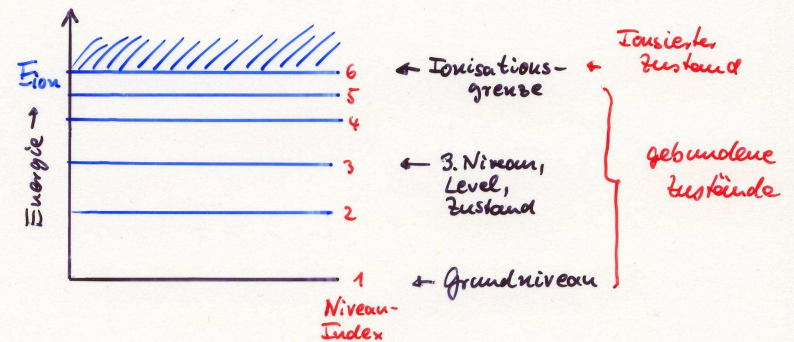 Energie →
E_ion
6
5
4
3
2
1
Niveau-
Index
← Ionisations-
grenze
← 3. Niveau,
Level,
Zustand
← Grundniveau
← Ionisierter
Zustand
gebundene
Zustände